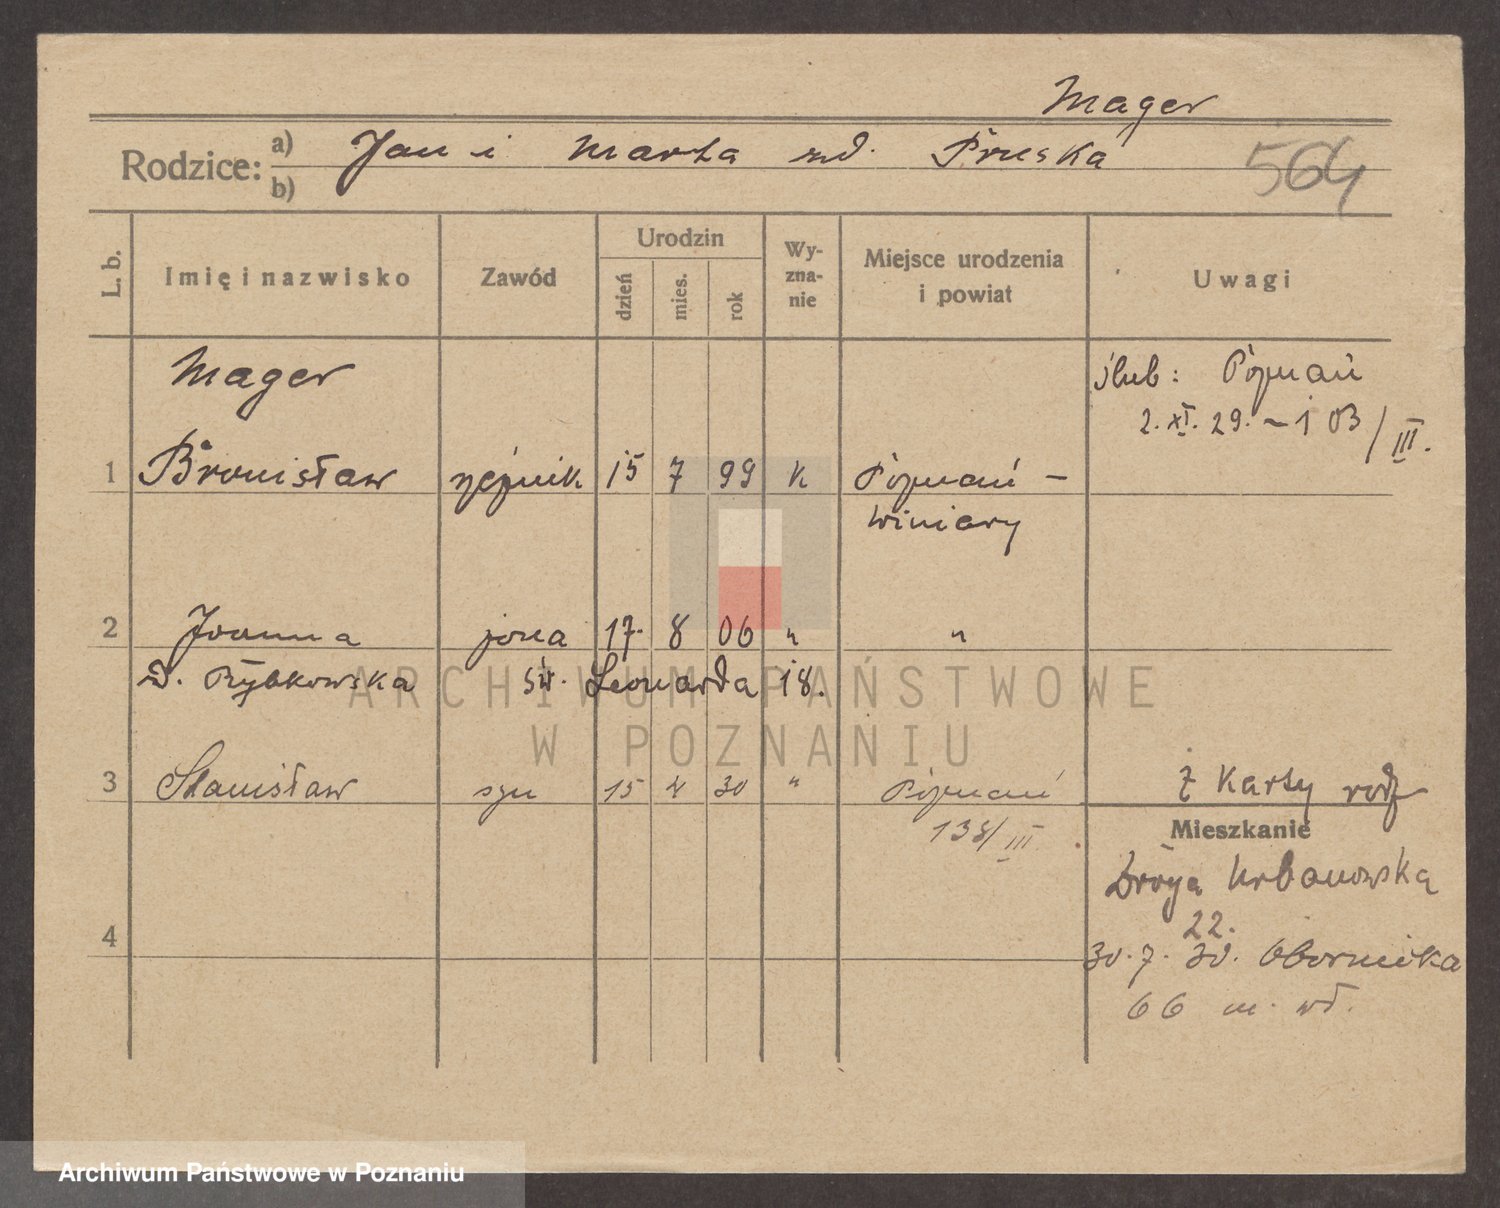 Mager
Rodzice: a) Jan i Marta zd. Pruska
b)
564
L. b. Imię i nazwisko Zawód Urodzin dzień mies. rok Wy-zna-nie Miejsce urodzenia i powiat Uwagi
Mager
ślub: Poznań
2. XI. 29. ~ 103/III.
1 Bronisław rzeźnik 15 7 99 k Poznań -
Winiary
2 Joanna żona 17. 8 06 " "
z d. Rybkowska św. Leonarda 18.
3 Stanisław syn 15 4 30 " Poznań
138/III
z karty rodz
Mieszkanie
Droga Urbanowska
22.
4
30.7.30. Obornicka
66 m. wł.
ARCHIWUM PAŃSTWOWE
W POZNANIU
Archiwum Państwowe w Poznaniu